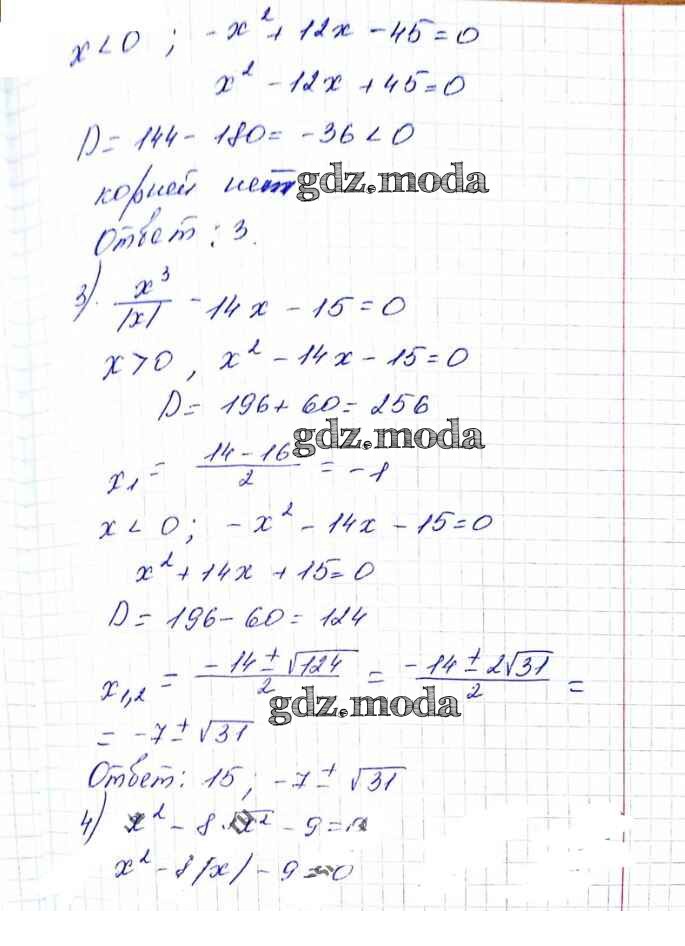 x < 0 ; -x² + 12x - 45 = 0
x² - 12x + 45 = 0
D = 144 - 180 = -36 < 0
корней нет gdz.moda
Ответ: 3.
3) x³/|x| - 14x - 15 = 0
x > 0, x² - 14x - 15 = 0
D = 196 + 60 = 256
gdz.moda
x₁ = (14 - 16)/2 = -1
x < 0; -x² - 14x - 15 = 0
x² + 14x + 15 = 0
D = 196 - 60 = 124
x₁,₂ = (-14 ± √124)/2 = (-14 ± 2√31)/2 =
gdz.moda
= -7 ± √31
Ответ: 15; -7 ± √31
4) x² - 8√x² - 9 =
x² - 8|x| - 9 = 0